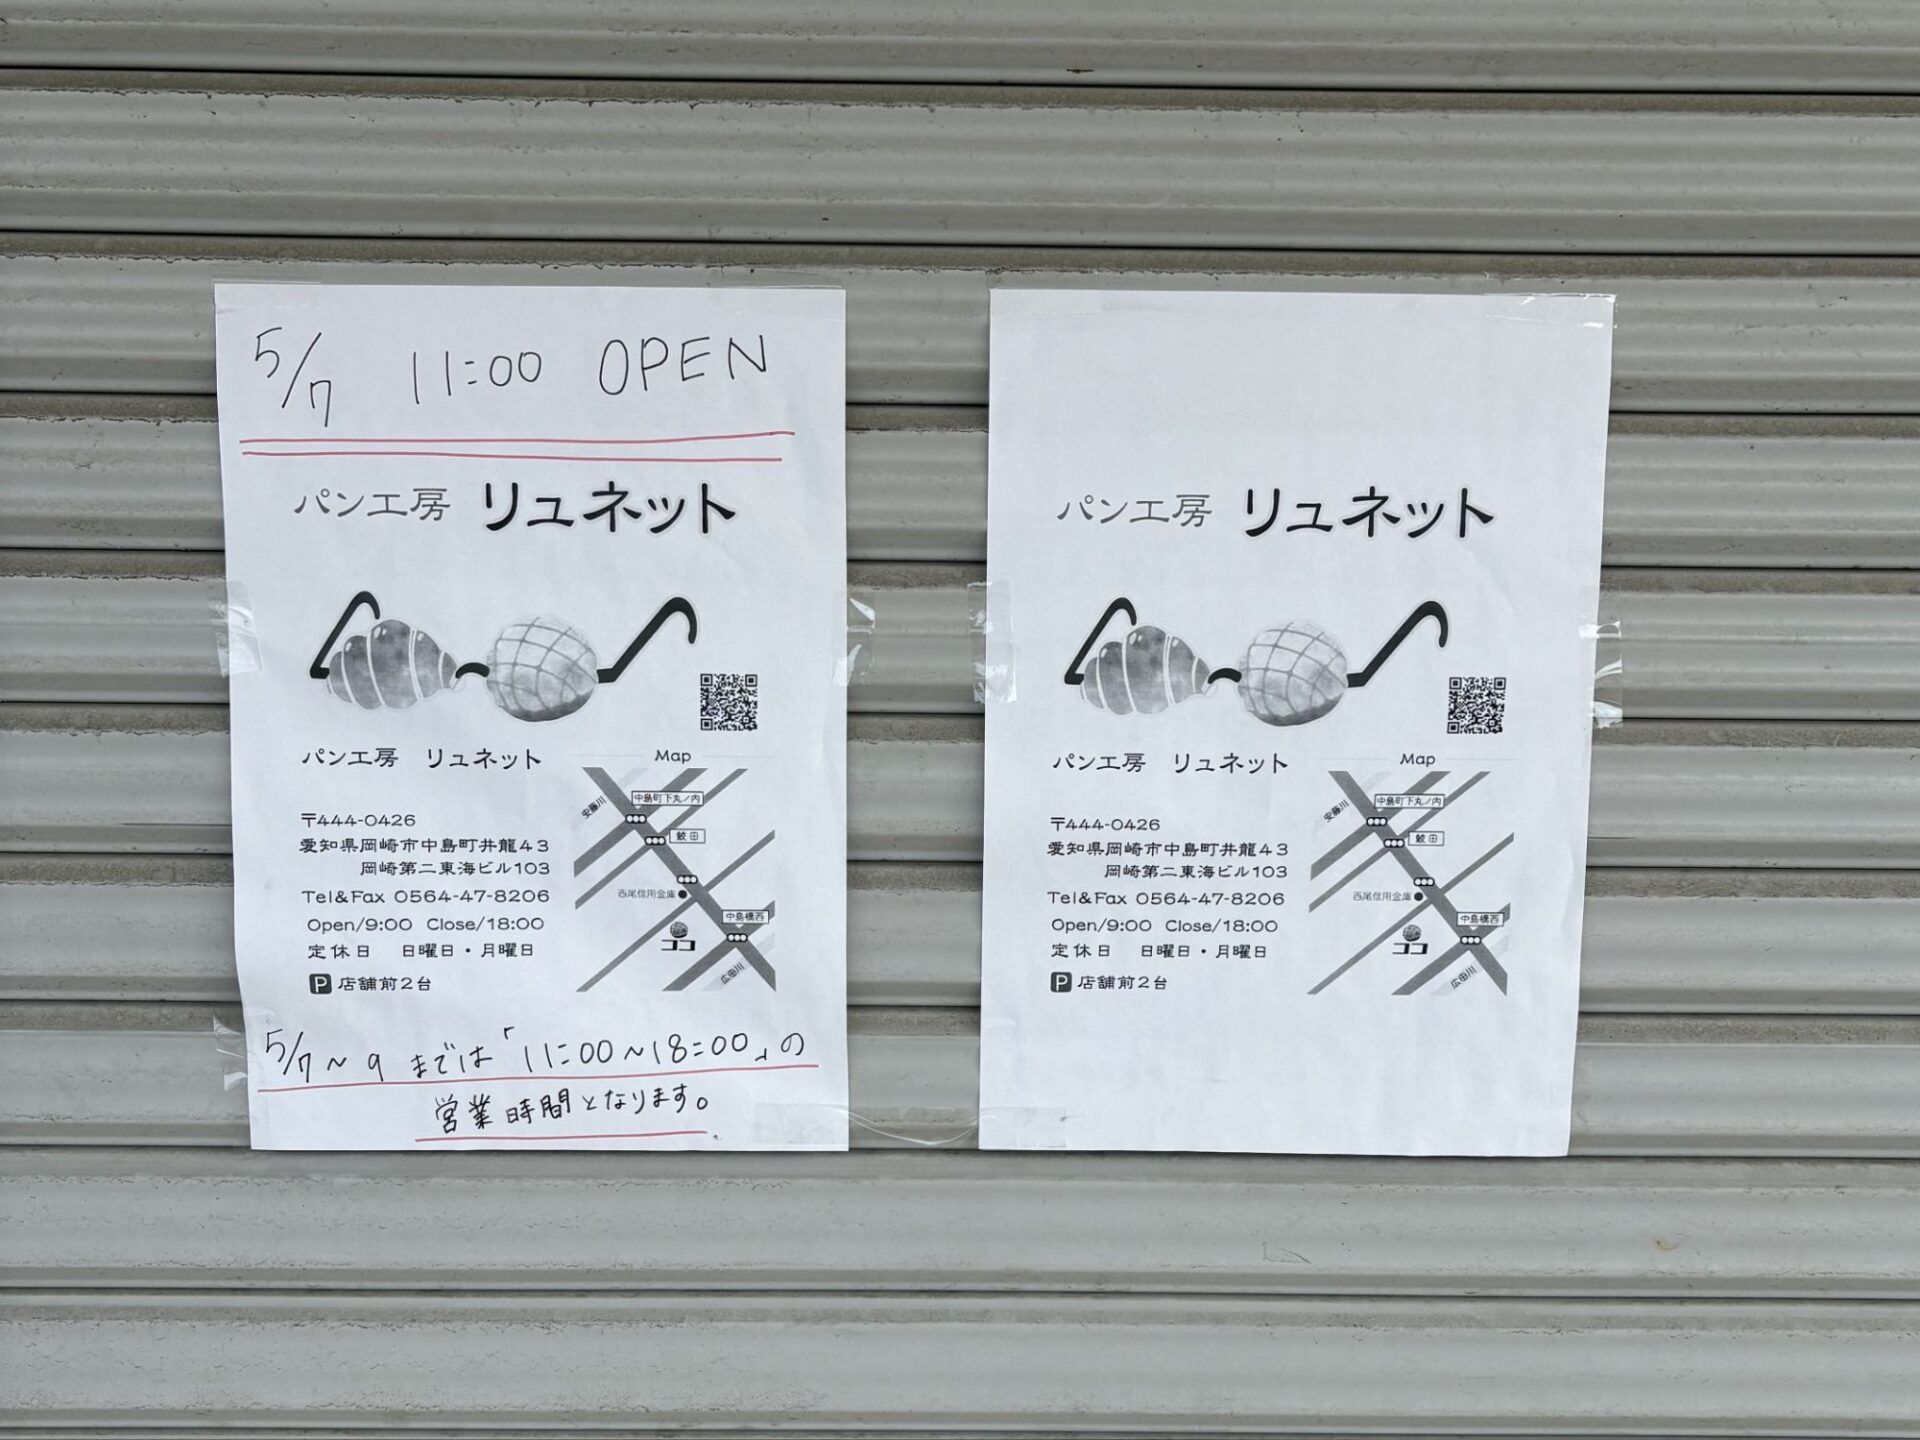 5/7 11:00 OPEN
パン工房 リュネット
パン工房 リュネット
〒444-0426
愛知県岡崎市中島町井龍43
岡崎第二東海ビル103
Tel&Fax 0564-47-8206
Open/9:00 Close/18:00
定休日 日曜日・月曜日
P 店舗前2台
Map
安藤川
中島町下丸ノ内
鮫田
西尾信用金庫
中島橋西
ココ
広田川
5/7~9までは「11:00~18:00」の
営業時間となります。
パン工房 リュネット
パン工房 リュネット
〒444-0426
愛知県岡崎市中島町井龍43
岡崎第二東海ビル103
Tel&Fax 0564-47-8206
Open/9:00 Close/18:00
定休日 日曜日・月曜日
P 店舗前2台
Map
安藤川
中島町下丸ノ内
鮫田
西尾信用金庫
中島橋西
ココ
広田川